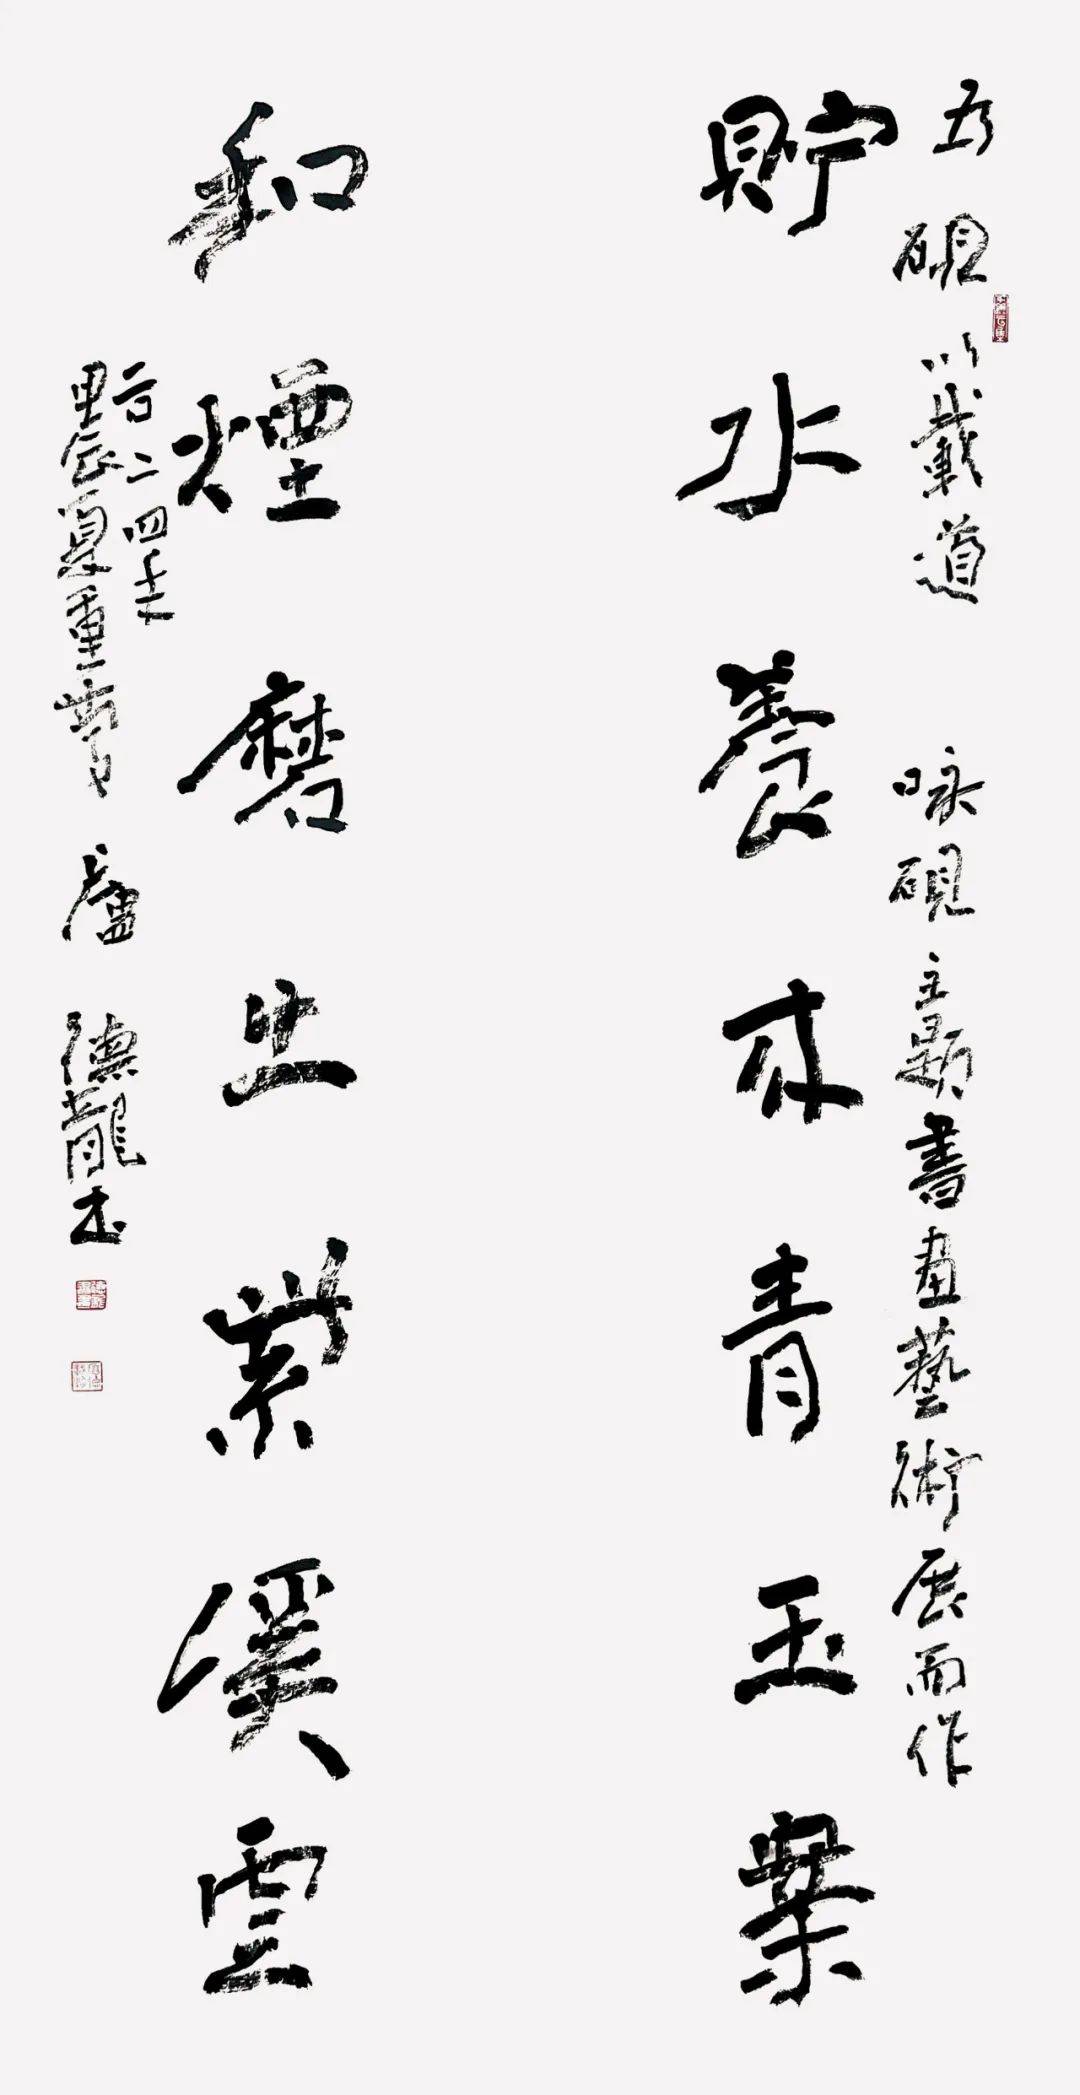 為硯以載道 咏硯主題書畫藝術展而作
貯水養青玉
和煙磨出紫溪雲
二〇二四年
甲辰夏重 盧德龍書